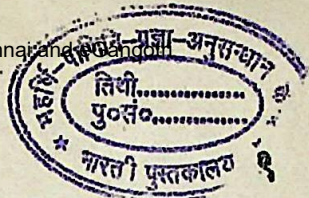 nnai and eGangotri
महर्षि-पाणिनि-प्रज्ञा-अनुसन्धान
तिथी..................
पु०सं०..................
* भारती पुस्तकालय